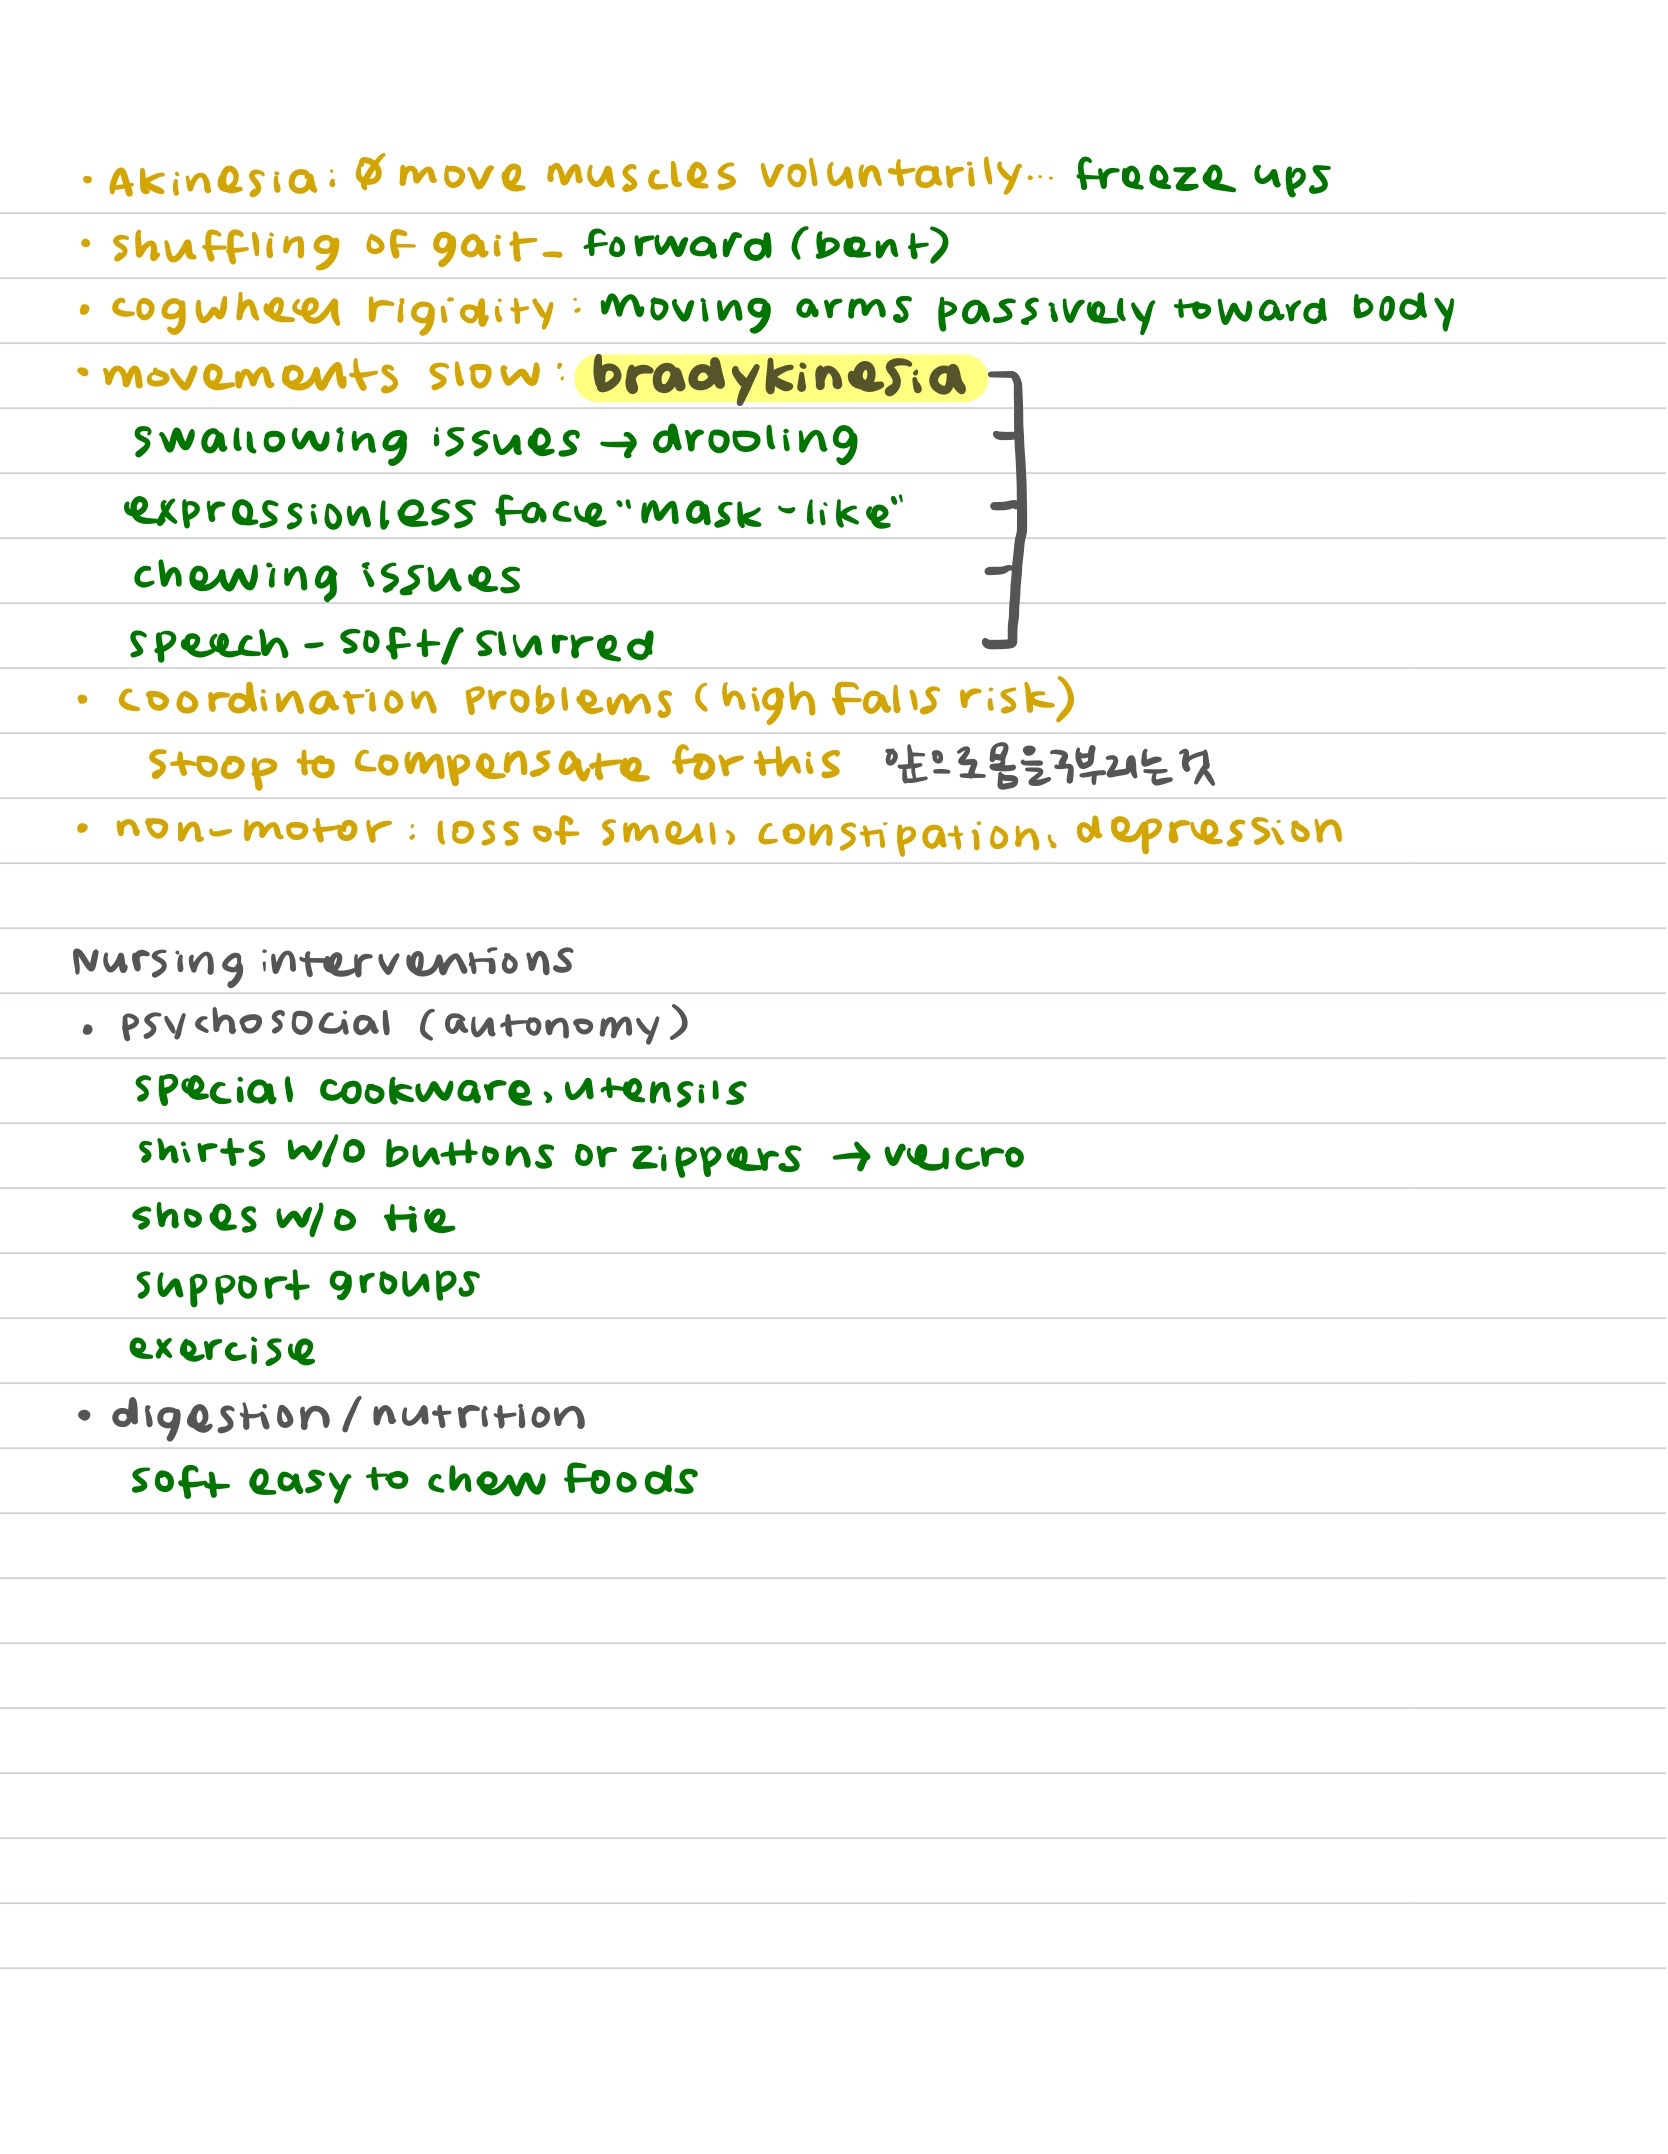 • Akinesia: Ø move muscles voluntarily... freeze ups
• shuffling of gait - forward (bent)
• cogwheel rigidity: moving arms passively toward body
• movements slow: bradykinesia
swallowing issues → drooling
expressionless face "mask-like"
chewing issues
speech - soft/slurred
• coordination problems (high falls risk)
stoop to compensate for this 앞으로 몸을 구부리는 것
• non-motor: loss of smell, constipation, depression
Nursing interventions
• psychosocial (autonomy)
special cookware, utensils
shirts w/o buttons or zippers → velcro
shoes w/o tie
support groups
exercise
• digestion/nutrition
soft easy to chew foods